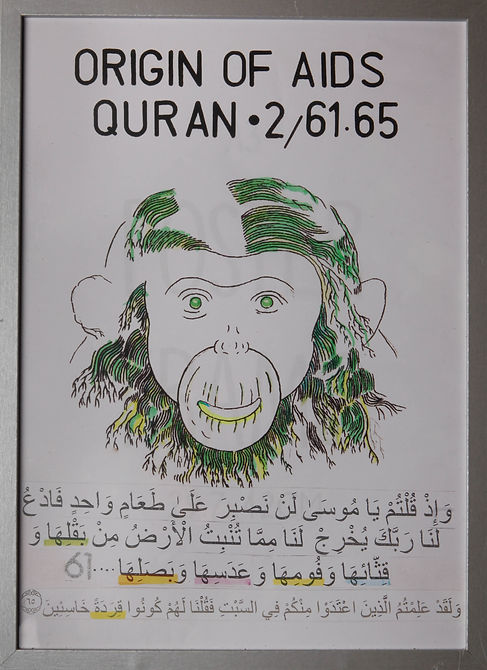 ORIGIN OF AIDS
QURAN•2/61.65
وَإِذْ قُلْتُمْ يَا مُوسَى لَنْ نَصْبِرَ عَلَىٰ طَعَامٍ وَاحِدٍ فَادْعُ
لَنَا رَبَّكَ يُخْرِجْ لَنَا مِمَّا تُنْبِتُ الْأَرْضُ مِنْ بَقْلِهَا وَ
قِثَّائِهَا وَفُومِهَا وَ عَدَسِهَا وَبَصَلِهَا....61
وَلَقَدْ عَلِمْتُمُ الَّذِينَ اعْتَدَوْا مِنْكُمْ فِي السَّبْتِ فَقُلْنَا لَهُمْ كُونُوا قِرَدَةً خَاسِئِينَ ٦٥